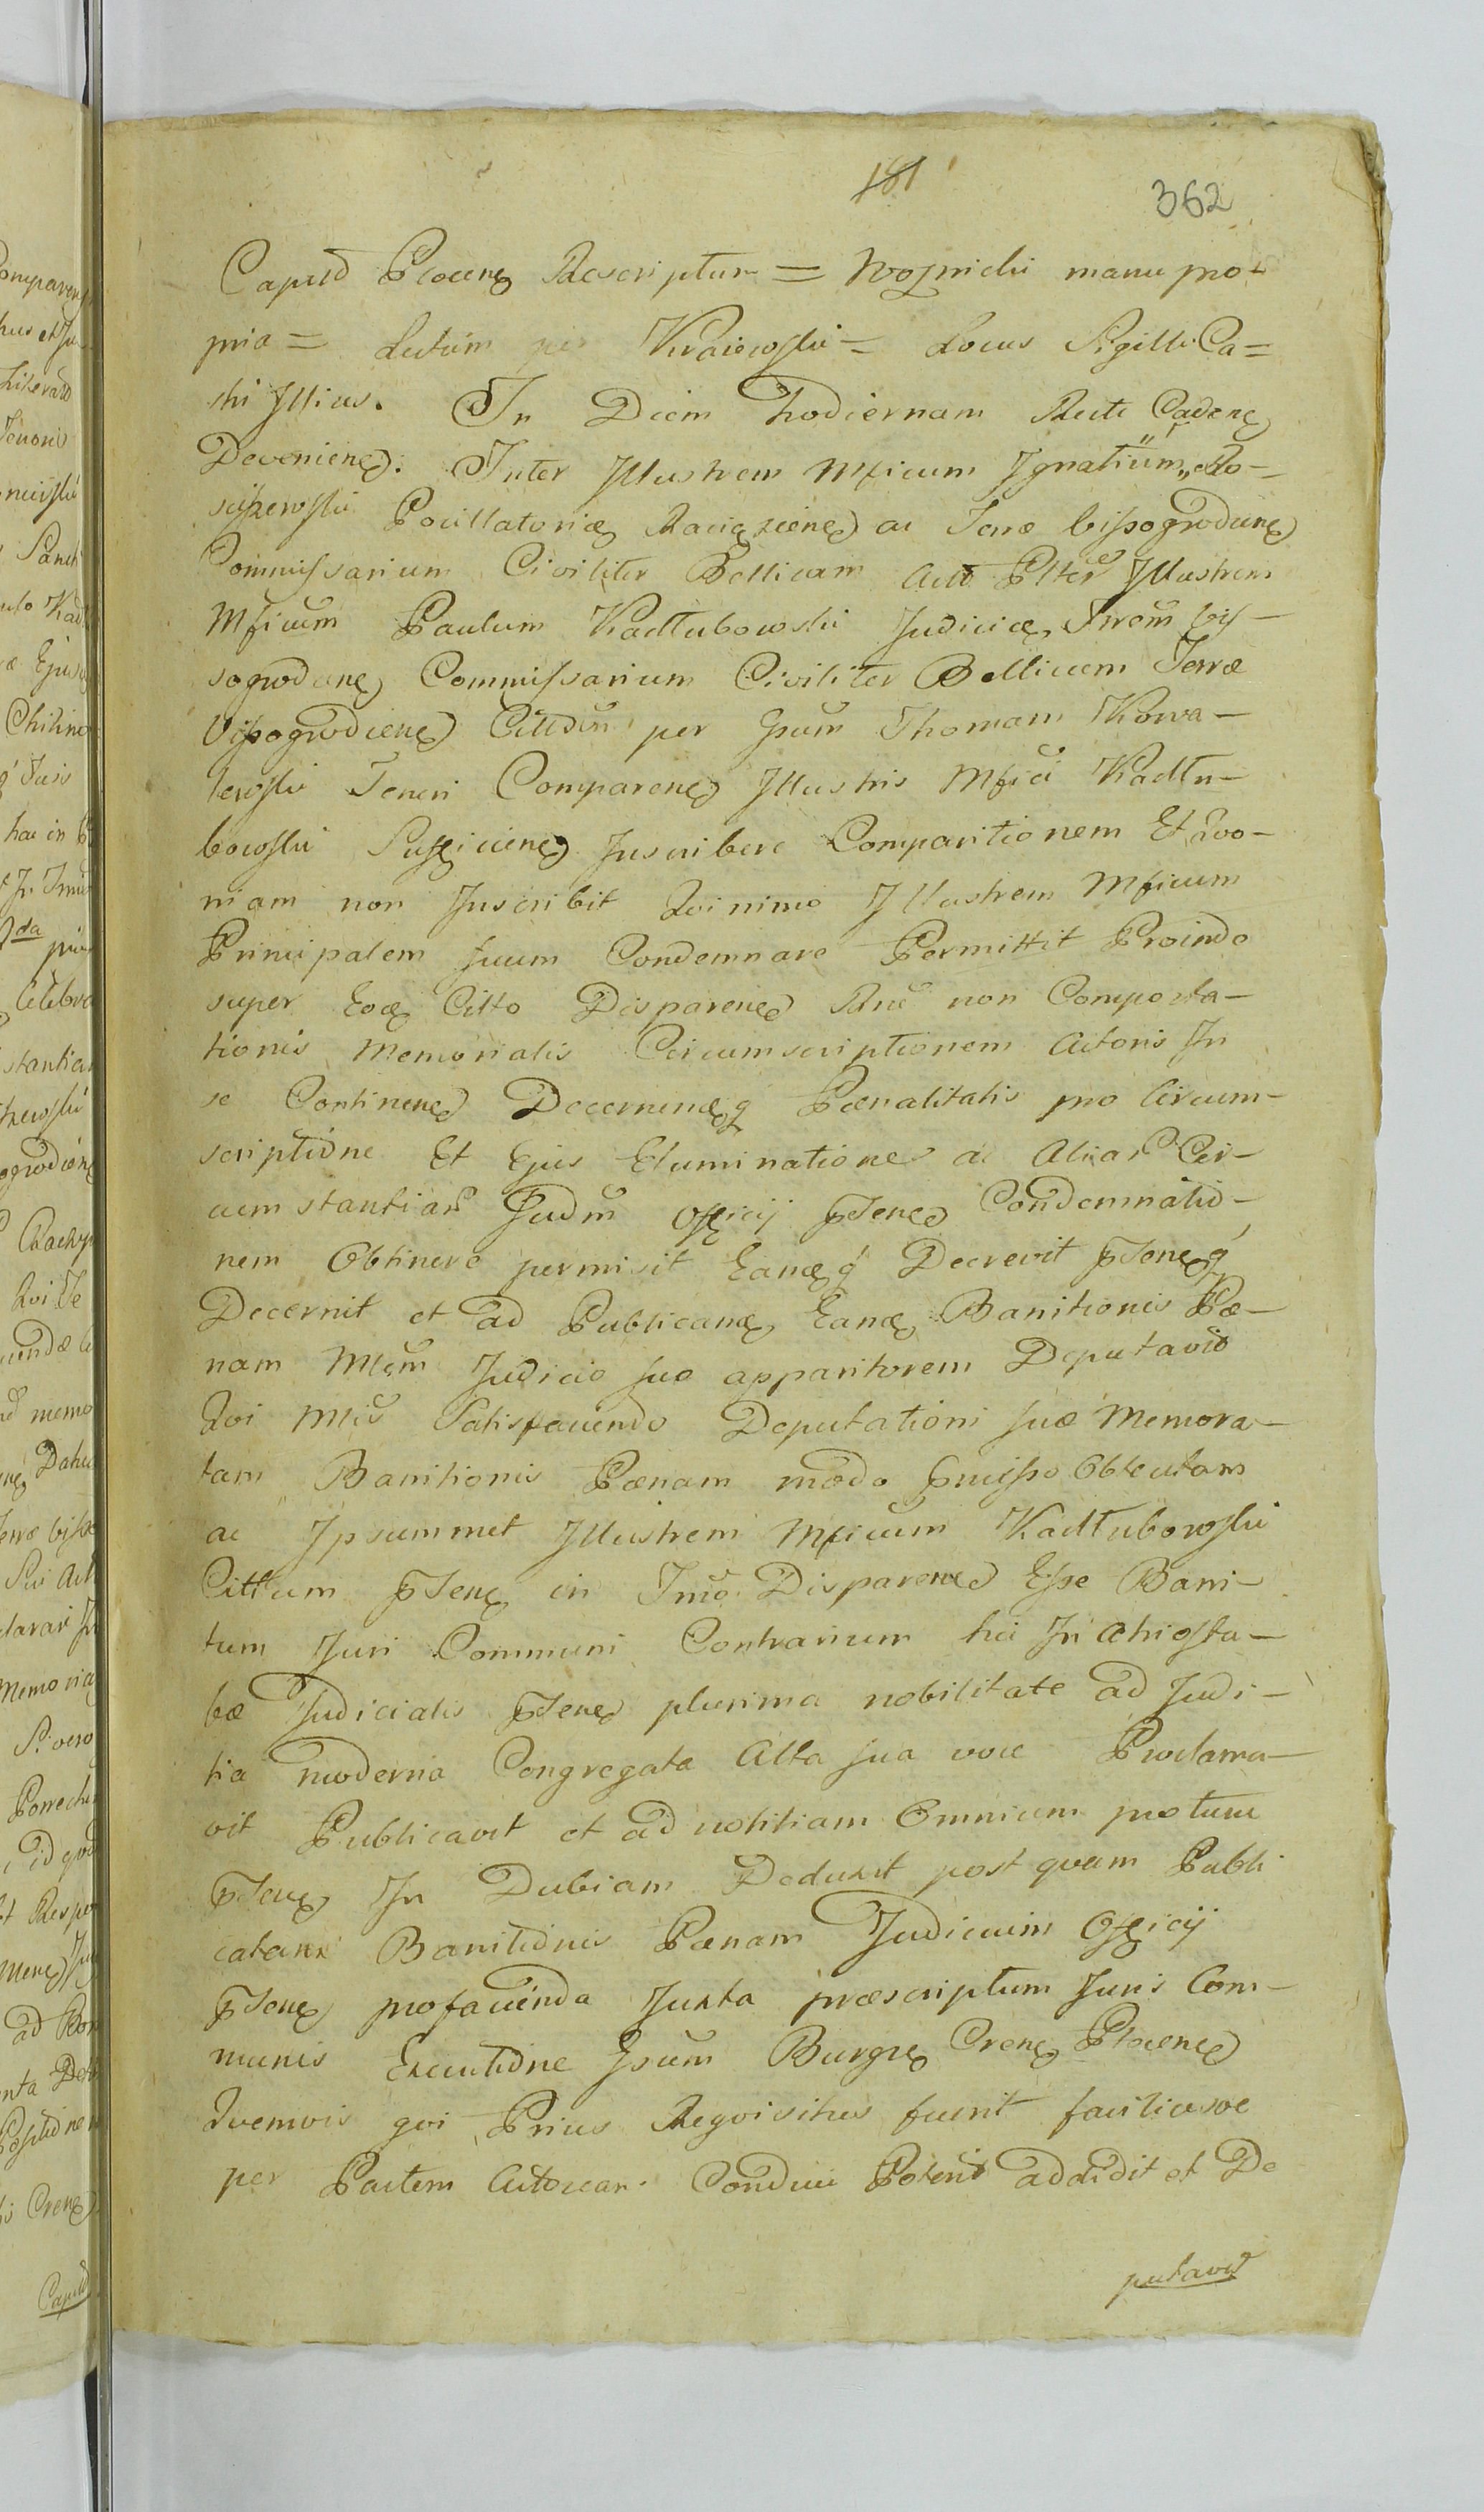 181
362
Captlt Plocens Rescriptum = Woźnicki manu pro-
pria = Lectum per Kraiewski = Locus Sigilli Ca-
stri Illius. In Diem hodiernam Recte Cadens
Deveniens. Inter Illustrem Mficum Ignatium „Ro-
Pocillatorie Raciąziens ac Terræ Wissogrodiens
Commissarium Civiliter Bellicum Act Ptter Illustrem
Mficum Paulum Kadłubowski Judicie Trrem Wis-
sogrodiens Commissarium Civiliter Bellicum Terræ
Wissogrodiens Cittum per Gsum Thomam Kowa-
lewski Teneri Comparens Illustris Mfici Kadłu-
bowski Suscipiens Inscribere Comparitionem Et Quo-
niam non Inscribit Quinimo Illustrem Mficum
Principalem suum Condemnare Permittit Proinde
super Eoq Citto Disparens Rne non Comporta-
tionis Memorialis Circumscriptionem Actoris In
se Continens Decernensq Pœnalitatis pro Circum-
scriptione Et Ejus Eluminatione ac Aliar Cir-
cumstantiar Judm Officij pSens Condemnatio-
nem Obtinere permisit Eamq Decrevit pSensq
Decernit et ad Publicand Eand Banitionis Pœ-
nam Mlem Judicio suo apparitorem Deputavit
Qui Mlis Satisfaciendo Deputationi suæ Memora-
tam Banitionis Pœnam modo præmisso Obtentam
ac Ipsummet Illustrem Mficum Kadłubowski
Cittum pSens in Tmo Disparens Esse Bani-
tum Juri Communi Contrarium hic In Athio sta-
bæ Judicialis pSens plurima nobilitate ad Judi-
tia moderna Congregata Alta sua voce Proclama-
vit Publicavit et ad notitiam Omnium
pSens In Dubiam Deduxit post quam Publi
catam Banitionis Pœnam Judicium Officij
pSens pro facienda Juxta præscriptum Juris Com-
munis Executione Gsum Burgre Crens Plocens
Quemvis qui Prius Requisitus fuerit faciliusve
per Partem Actoream Conduci Poterit addidit et De
putavit